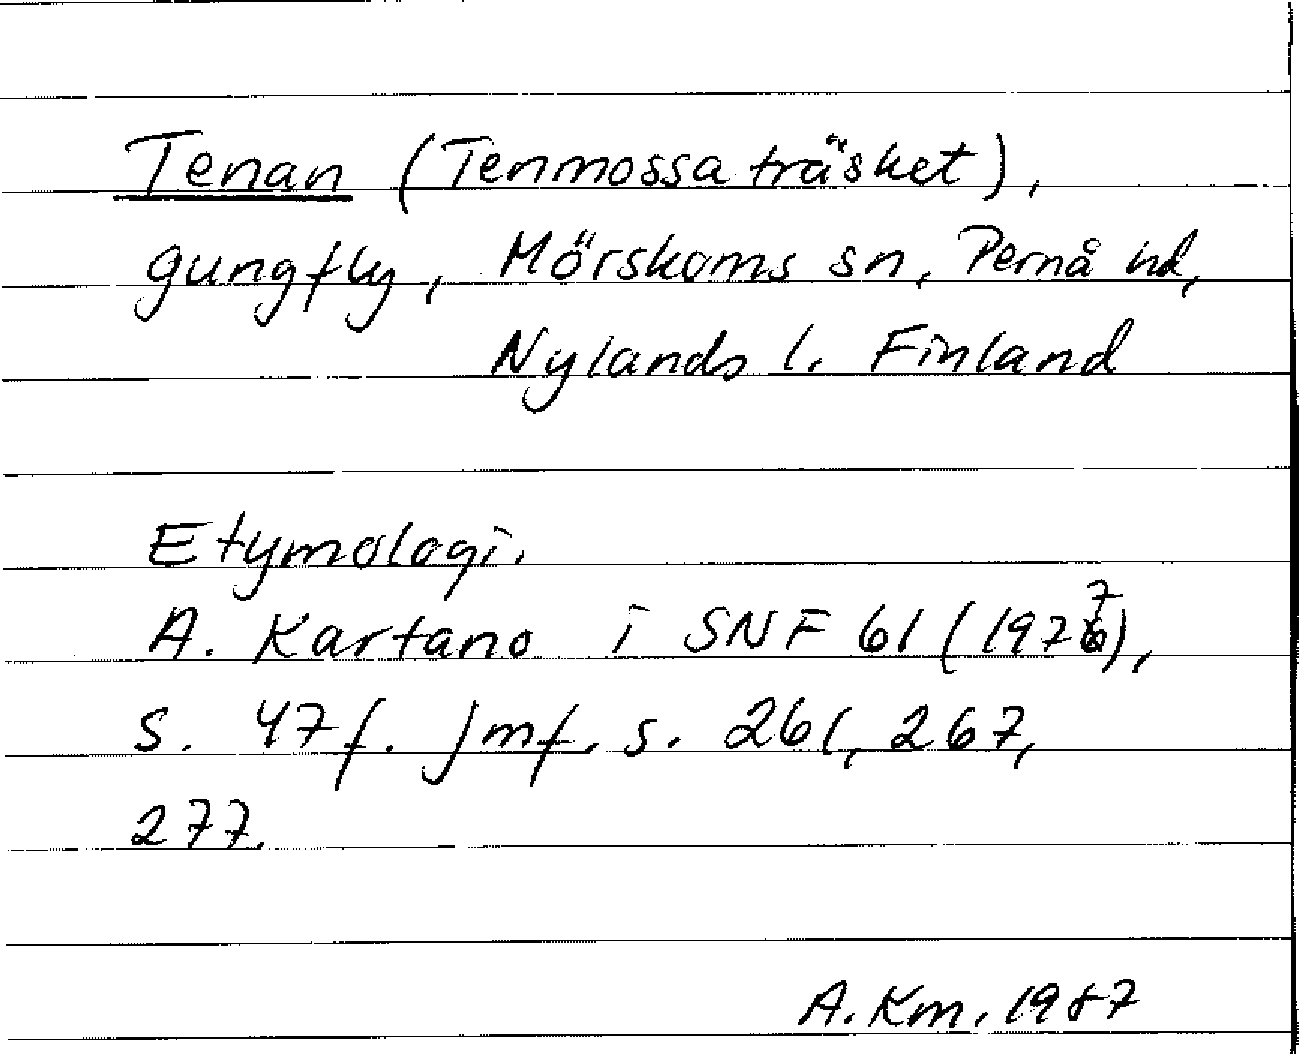 Tenan (Tenmossaträsket),
gungfly, Mörskoms sn, Pernå hd,
Nylands l. Finland
Etymologi.
A. Kartano i SNF 61 (1977),
s. 47 f. Jmf. s. 261, 267,
277.
A. Km. 1987